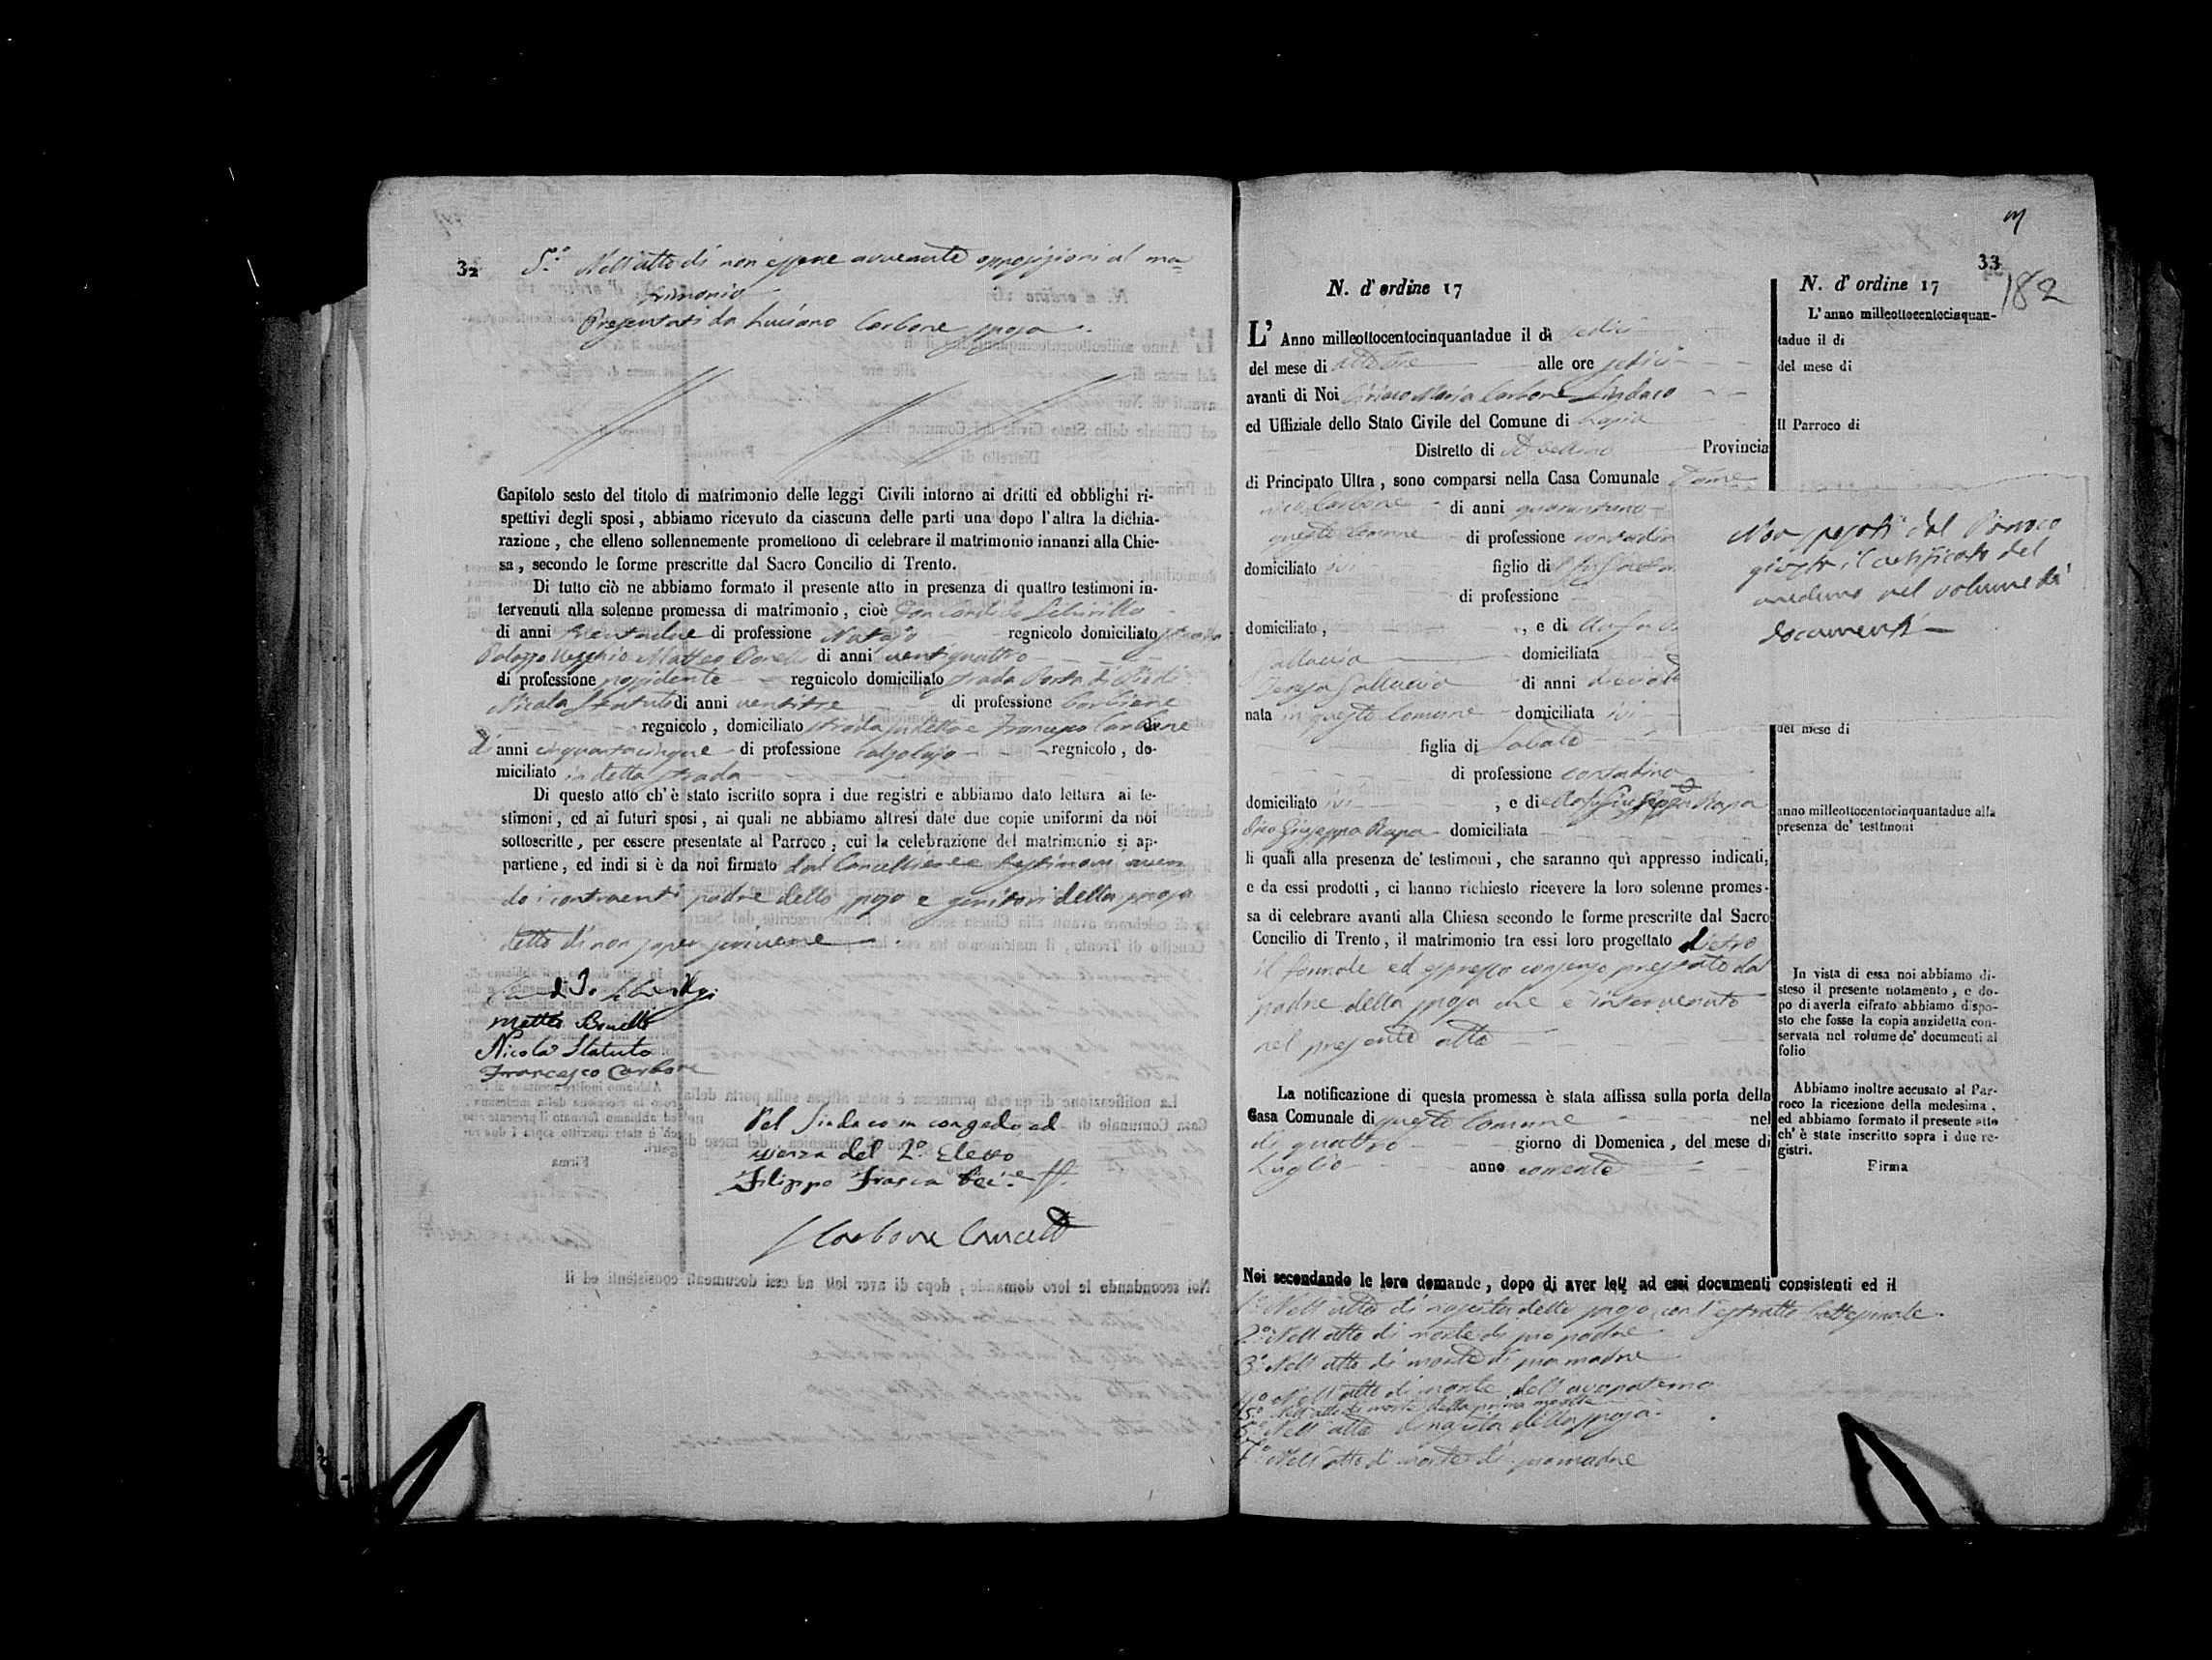 32
5.° Nell'atto di non essere avvenute opposizioni al ma=
trimonio
Presentati da Luciano Carbone sposo.
Capitolo sesto del titolo di matrimonio delle leggi Civili intorno ai dritti ed obblighi ri-
spettivi degli sposi, abbiamo ricevuto da ciascuna delle parti una dopo l'altra la dichia-
razione, che elleno sollennemente promettono di celebrare il matrimonio innanzi alla Chie-
sa, secondo le forme prescritte dal Sacro Concilio di Trento.
Di tutto ciò ne abbiamo formato il presente atto in presenza di quattro testimoni in-
tervenuti alla solenne promessa di matrimonio, cioè Don
di anni trentadue di professione Notajo regnicolo domiciliato strada
Palazzo Vecchio Matteo di anni ventiquattro
di professione possidente regnicolo domiciliato strada Porta di Piedi
Nicola Statuto di anni ventitre di professione Barbiere
regnicolo, domiciliato strada e Francesco Carbone
di anni cinquantacinque di professione Calzolajo regnicolo, do-
miciliato in detta strada
Di questo atto ch'è stato iscritto sopra i due registri e abbiamo dato lettura ai te-
stimoni, ed ai futuri sposi, ai quali ne abbiamo altresì date due copie uniformi da noi
sottoscritte, per essere presentate al Parroco, cui la celebrazione del matrimonio si ap-
partiene, ed indi si è da noi firmato dal Cancelliere e testimoni aven
do i contraenti padre dello sposo e genitori della sposa
detto di non saper scrivere
Matteo
Nicola Statuto
Francesco Carbone
Pel Sindaco in congedo ed
assenza del 2.° Eletto
Filippo Frasca
Carbone Canc
33
182
N. d'ordine 17
L'Anno milleottocentocinquantadue il dì sedici
del mese di ottobre alle ore sedici
avanti di Noi Ciriaco Maria Carbone Sindaco
ed Uffiziale dello Stato Civile del Comune di Lapio
Distretto di Avellino Provincia
di Principato Ultra, sono comparsi nella Casa Comunale Dome
nico Carbone di anni quarantuno
questo Comune di professione contadin
domiciliato ivi figlio di
di professione
domiciliato, , e di
Gallucci domiciliata
di anni
nata in questo Comune domiciliata ivi
figlia di Sabato
di professione contadino
domiciliato ivi , e di Rapa
dico Giuseppa Rapa domiciliata
li quali alla presenza de' testimoni, che saranno quì appresso indicati,
e da essi prodotti, ci hanno richiesto ricevere la loro solenne promes-
sa di celebrare avanti alla Chiesa secondo le forme prescritte dal Sacro
Concilio di Trento, il matrimonio tra essi loro progettato dietro
il formale ed espresso consenso prestato dal
padre della sposa che è intervenuto
nel presente atto
La notificazione di questa promessa è stata affissa sulla porta della
Casa Comunale di questo Comune nel
di quattro giorno di Domenica, del mese di
Luglio anno corrente
Noi secondando le loro domande, dopo di aver letti ad essi documenti consistenti ed il
1.° Nell'atto di nascita dello sposo con l'estratto battesimale.
2.° Nell'atto di morte di suo padre
3.° Nell'atto di morte di sua madre
4.° Nell'atto di morte dell'avo paterno
5.° Nell'atto di morte della prima moglie
6.° Nell'atto di nascita della sposa.
7.° Nell'atto di morte di sua madre
N. d'ordine 17
L'anno milleottocentocinquan-
tadue il di
del mese di
Il Parroco di
Non del Parroco
il certificato del
medesimo nel volume di
documenti
del mese di
anno milleottocentocinquantadue alla
presenza de' testimoni
In vista di essa noi abbiamo di-
steso il presente notamento, e do-
po di averla cifrato abbiamo dispo-
sto che fosse la copia anzidetta con-
servata nel volume de' documenti al
folio
Abbiamo inoltre accusato al Par-
roco la ricezione della medesima,
ed abbiamo formato il presente atto
ch'è state inscritto sopra i due re-
gistri.
Firma